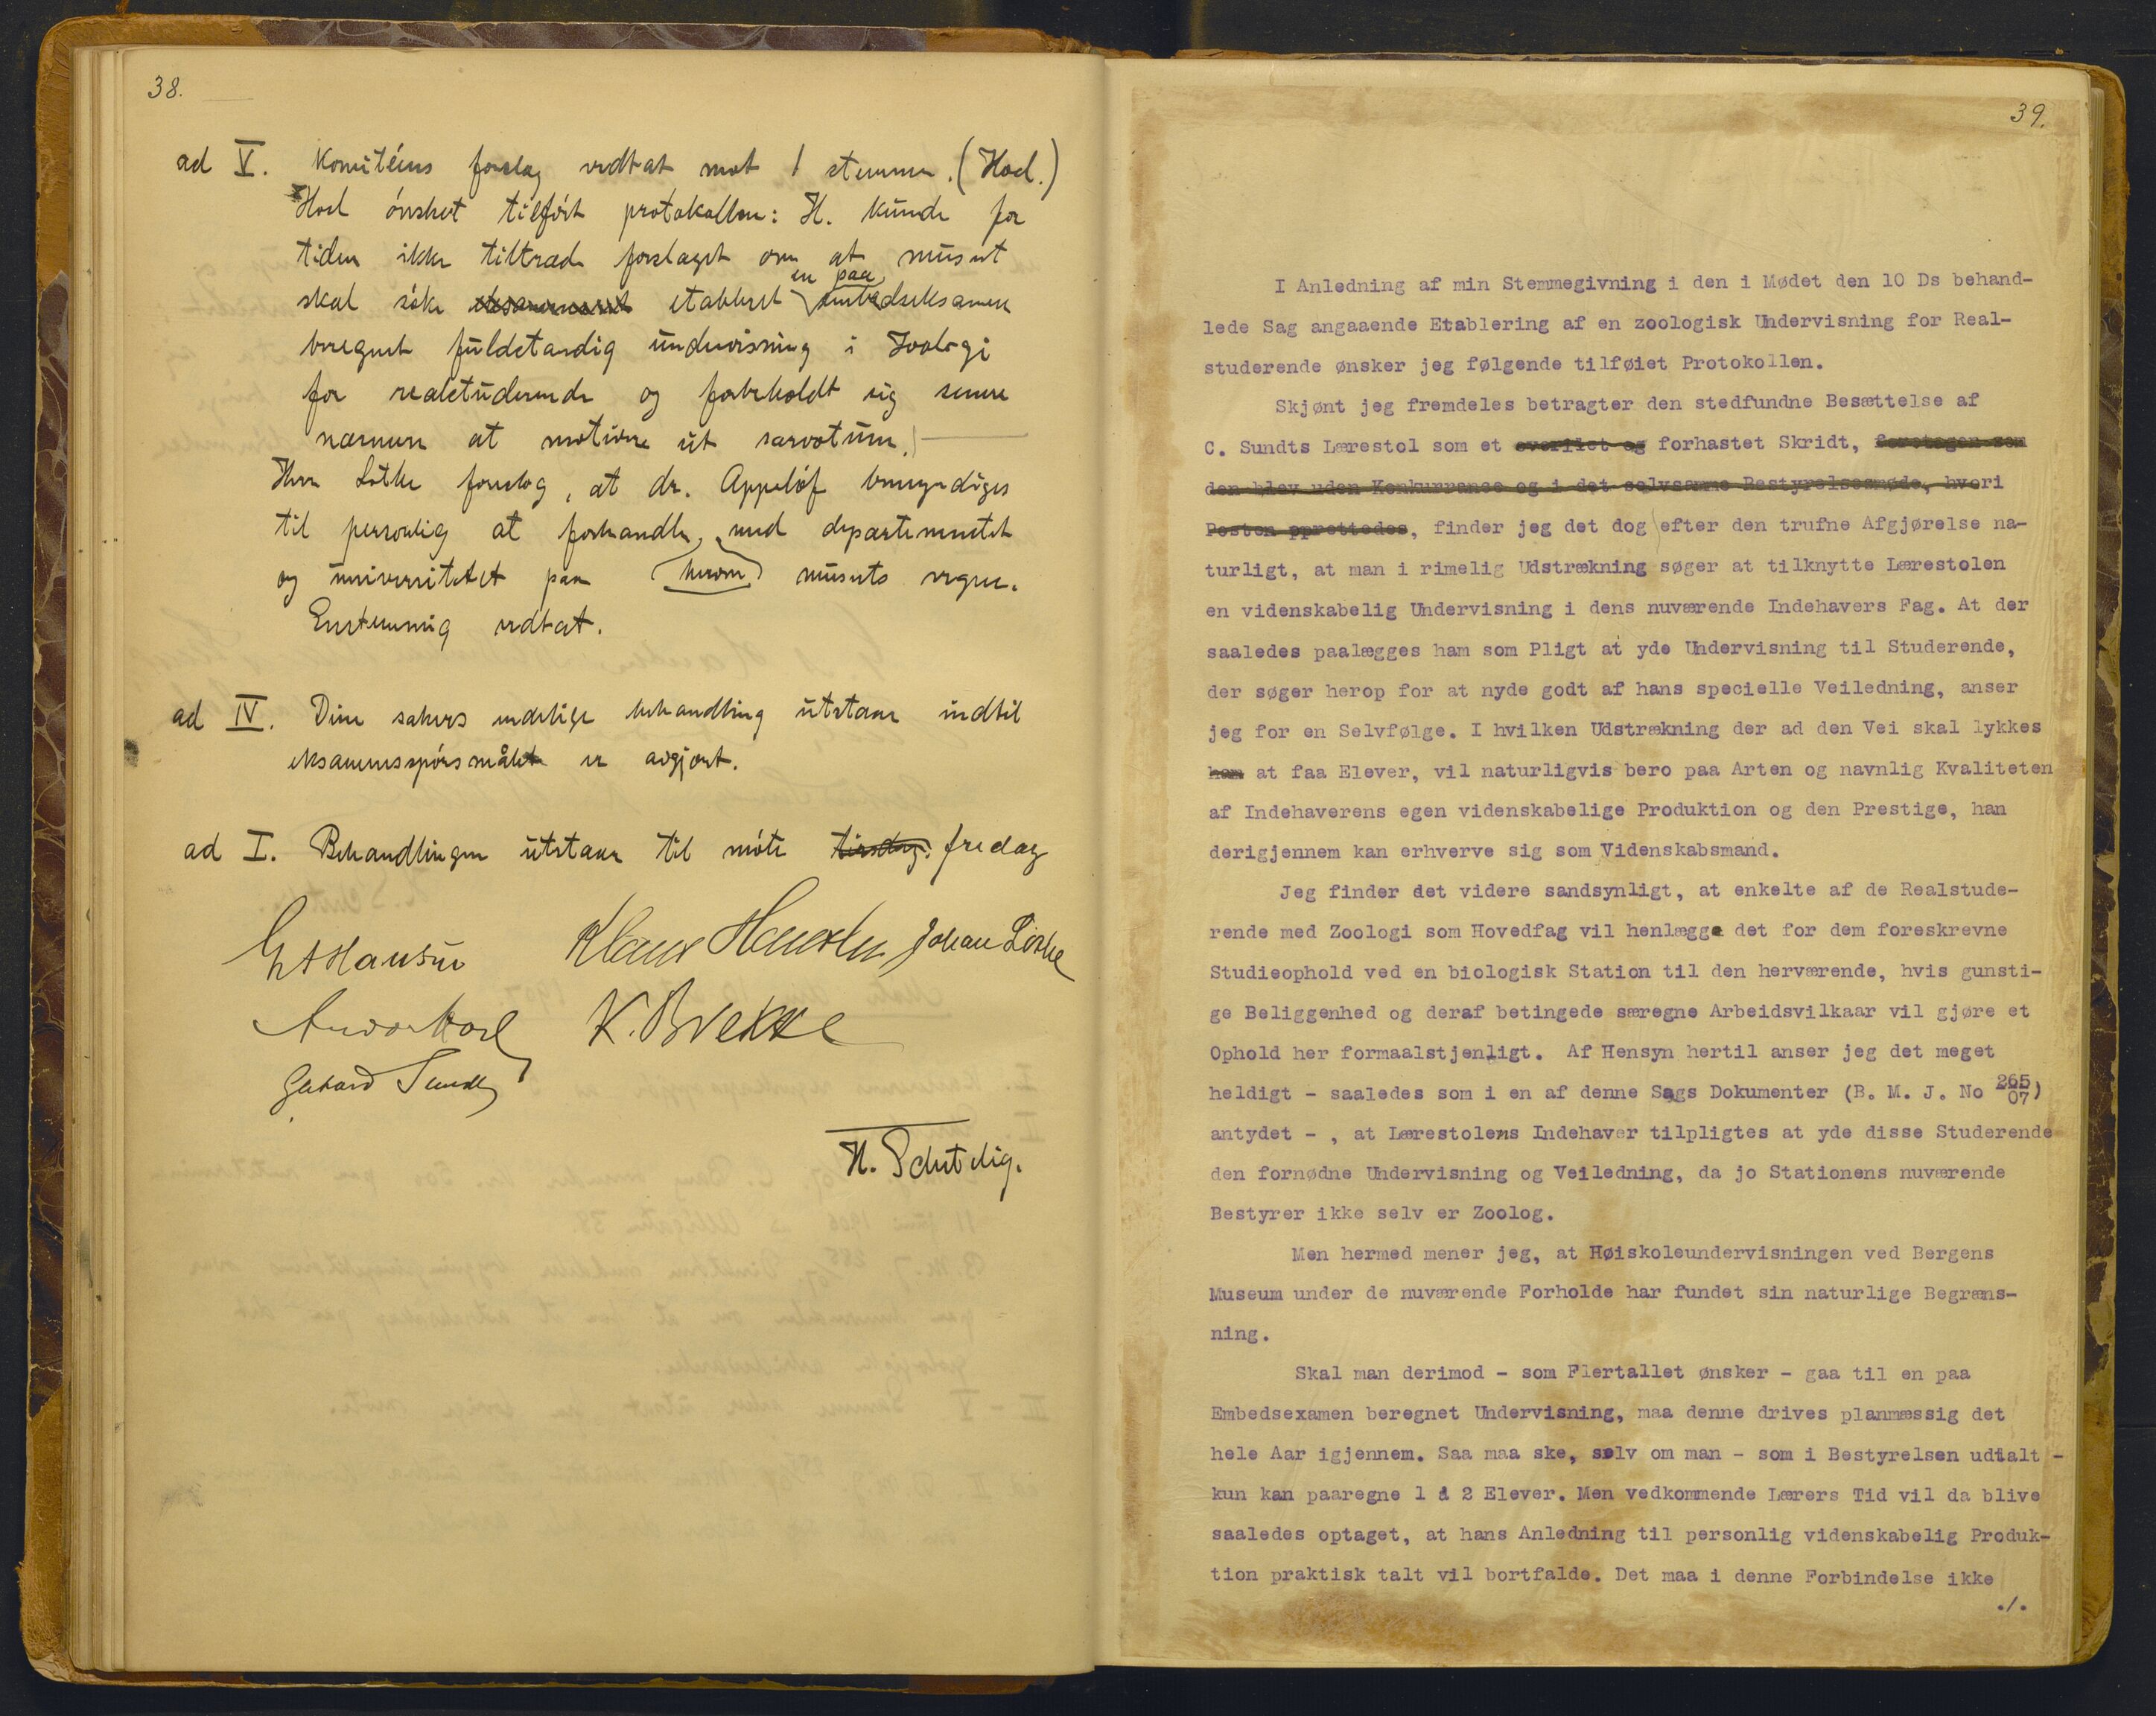 38.
ad V. Komitéens forslag vedtat mot 1 stemme. (Hoel.)
Hoel ønsket tilført protokollen: H. kunde for
tiden ikke tiltræde forslaget om at museet
skal søke etableret en paa embedseksamen
beregnet fuldstændig undervisning i Zoologi
for realstuderende og forbeholdt sig senere
nærmere at motivere sit særvotum.
Herr Lothe foreslog, at dr. Appelöf bemyndiges
til personlig at forhandle med departementet
og universitetet paa (herom) museets vegne.
Enstemmig vedtat.
ad IV. Disse sakers endelige behandling utstaar indtil
eksamensspørsmålet er avgjort.
ad I. Behandlingen utstaar til møte tirsdag. fredag
G A Hansen Klaus Hanssen Johan Lothe
K. Brekke
H. Schetelig.
39.
I Anledning af min Stemmegivning i den i Mødet den 10 Ds behand-
lede Sag angaaende Etablering af en zoologisk Undervisning for Real-
studerende ønsker jeg følgende tilføiet Protokollen.
Skjønt jeg fremdeles betragter den stedfundne Besættelse af
C. Sundts Lærestol som et overilet og forhastet Skridt, foretagen som
den blev uden Konkurrance og i det selvsamme Bestyrelsesmøde, hvori
Posten oprettedes, finder jeg det dog efter den trufne Afgjørelse na-
turligt, at man i rimelig Udstrækning søger at tilknytte Lærestolen
en videnskabelig Undervisning i dens nuværende Indehavers Fag. At der
saaledes paalægges ham som Pligt at yde Undervisning til Studerende,
der søger herop for at nyde godt af hans specielle Veiledning, anser
jeg for en Selvfølge. I hvilken Udstrækning der ad den Vei skal lykkes
ham at faa Elever, vil naturligvis bero paa Arten og navnlig Kvaliteten
af Indehaverens egen videnskabelige Produktion og den Prestige, han
derigjennem kan erhverve sig som Videnskabsmand.
Jeg finder det videre sandsynligt, at enkelte af de Realstude-
rende med Zoologi som Hovedfag vil henlægge det for dem foreskrevne
Studieophold ved en biologisk Station til den herværende, hvis gunsti-
ge Beliggenhed og deraf betingede særegne Arbeidsvilkaar vil gjøre et
Ophold her formaalstjenligt. Af Hensyn hertil anser jeg det meget
heldigt - saaledes som i en af denne Sags Dokumenter (B. M. J. No 265/07)
antydet - , at Lærestolens Indehaver tilpligtes at yde disse Studerende
den fornødne Undervisning og Veiledning, da jo Stationens nuværende
Bestyrer ikke selv er Zoolog.
Men hermed mener jeg, at Høiskoleundervisningen ved Bergens
Museum under de nuværende Forholde har fundet sin naturlige Begræns-
ning.
Skal man derimod - som Flertallet ønsker - gaa til en paa
Embedsexamen beregnet Undervisning, maa denne drives planmæssig det
hele Aar igjennem. Saa maa ske, selv om man - som i Bestyrelsen udtalt -
kun kan paaregne 1 à 2 Elever. Men vedkommende Lærers Tid vil da blive
saaledes optaget, at hans Anledning til personlig videnskabelig Produk-
tion praktisk talt vil bortfalde. Det maa i denne Forbindelse ikke
./.